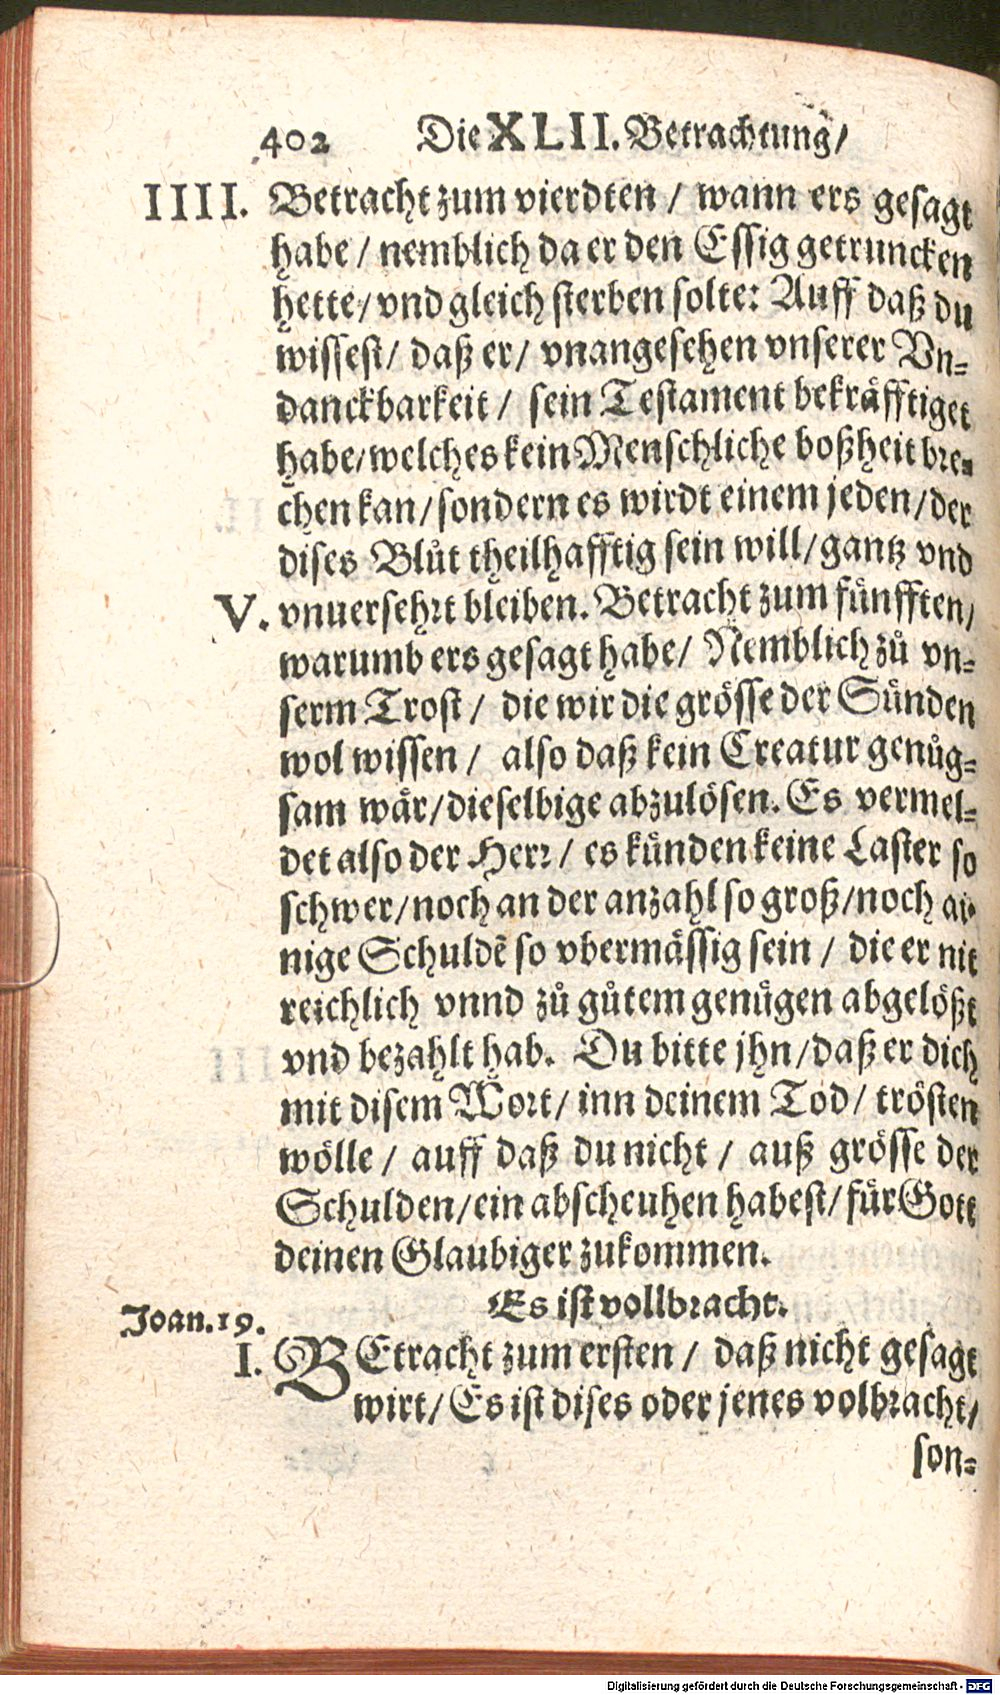 402 Die XLII. Betrachtung/
IIII. Betracht zum vierdten / wann ers gesagt
habe / nemblich da er den Essig getruncken
hette / vnd gleich sterben solte: Auff daß du
wissest / daß er / vnangesehen vnserer Vn-
danckbarkeit / sein Testament bekräfftiget
habe / welches kein Menschliche boßheit bre-
chen kan / sondern es wirdt einem jeden / der
dises Blůt theilhafftig sein will / gantz vnd
V. vnuersehrt bleiben. Betracht zum fünfften /
warumb ers gesagt habe / Nemblich zů vn-
serm Trost / die wir die grösse der Sünden
wol wissen / also daß kein Creatur genůg-
sam wär / dieselbige abzulösen. Es vermel-
det also der Herr / es künden keine Laster so
schwer / noch an der anzahl so groß / noch ai-
nige Schuldẽ so vbermässig sein / die er nit
reichlich vnnd zů gůtem genügen abgelößt
vnd bezahlt hab. Du bitte jhn / daß er dich
mit disem Wort / inn deinem Tod / trösten
wölle / auff daß du nicht / auß grösse der
Schulden / ein abscheuhen habest / für Gott
deinen Glaubiger zukommen.
Es ist vollbracht.
Joan. 19.
I. BEtracht zum ersten / daß nicht gesagt
wirt / Es ist dises oder jenes volbracht /
son-
Digitalisierung gefördert durch die Deutsche Forschungsgemeinschaft - DFG